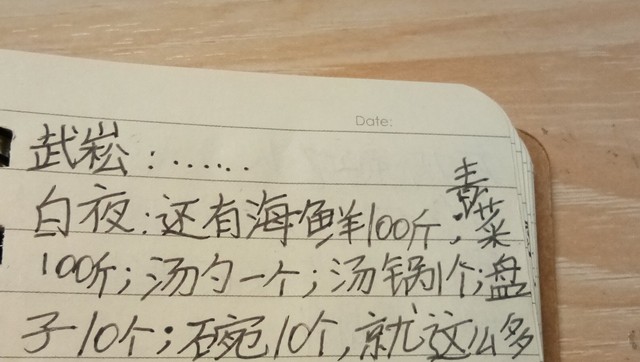 Date:
武崧:……
白夜:还有海鲜100斤,素菜
100斤;汤勺一个;汤锅1个;盘
子10个;碗10个,就这么多